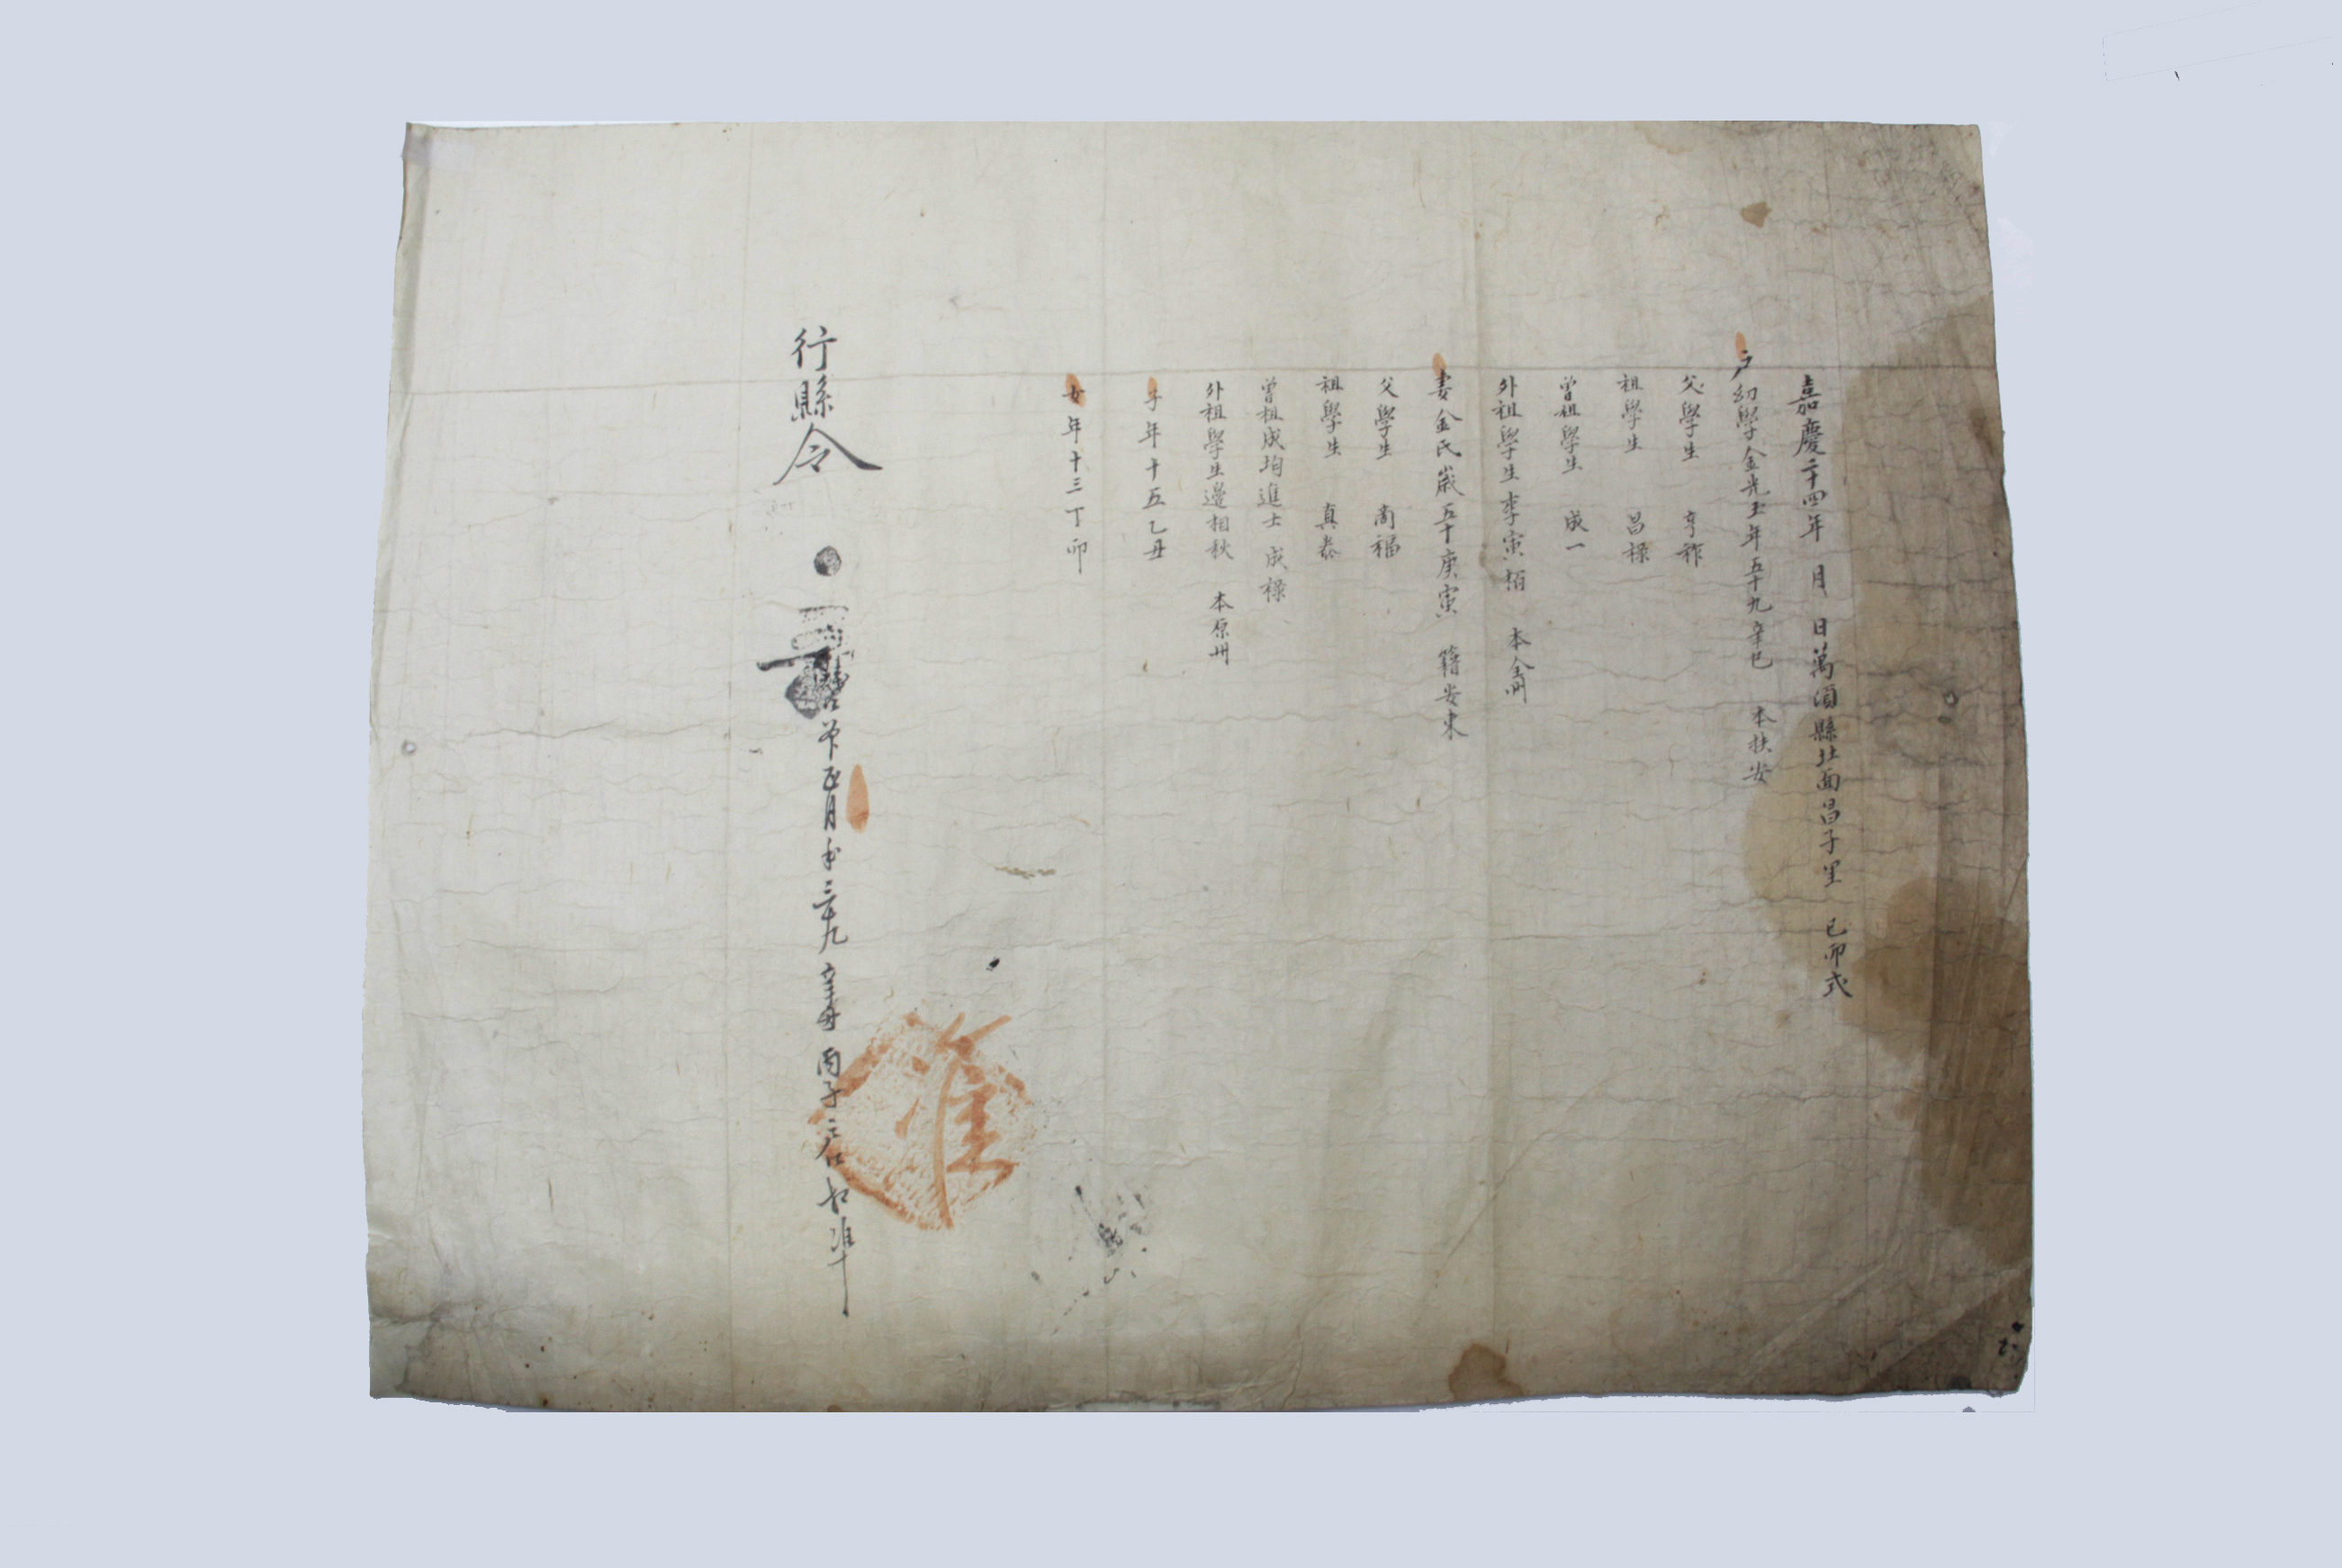 嘉慶二十四年 月 日萬頃縣北面昌子里 己卯式
戶幼學金光玉年五十九辛巳 本扶安
父學生 亨祚
祖學生 昌祿
曾祖學生 成一
外祖學生李寅栢 本全州
妻金氏歲五十庚寅 籍安東
父學生 尚福
祖學生 真泰
曾祖成均進士 成祿
外祖學生邊相秋 本原州
子年十五乙丑
女年十三丁卯
行縣令
正月年三十九辛丑丙子戶口相準
準